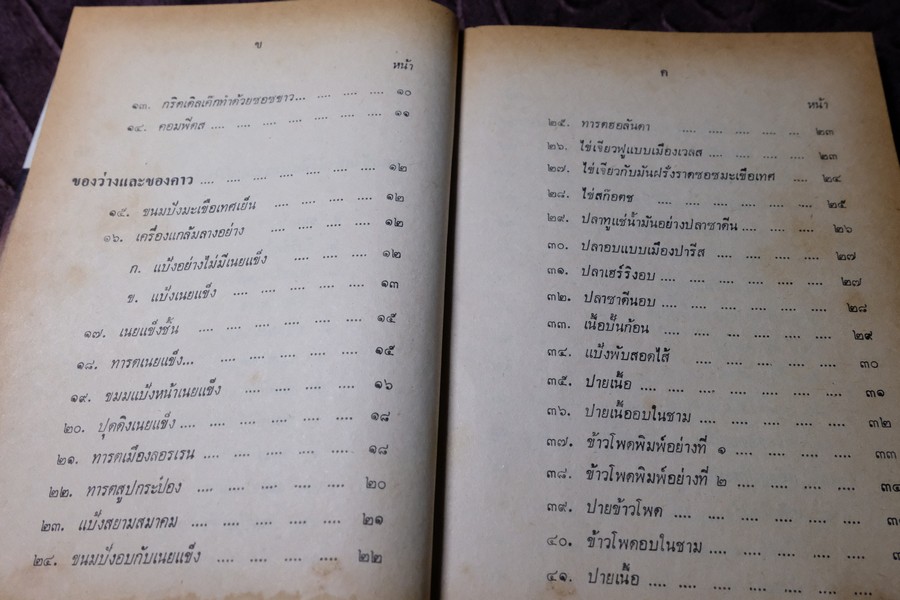 ข
หน้า
๑๓. กริดเดิลเค๊กทำด้วยซอชขาว... .... .... .... ๑๐
๑๔. คอมพีตส .... .... .... .... .... .... ๑๑
ของว่างและของคาว .... .... .... .... .... ๑๒
๑๕. ขนมปังมะเขือเทศเย็น .... .... .... .... ๑๒
๑๖. เครื่องแกล้มลางอย่าง .... .... .... .... ๑๒
ก. แป้งอย่างไม่มีเนยแข็ง .... .... .... ๑๒
ข. แป้งเนยแข็ง .... .... .... .... .... ๑๓
๑๗. เนยแข็งชั้น .... .... .... .... .... ๑๕
๑๘. ทารตเนยแข็ง... .... .... .... .... .... ๑๕
๑๙. ขมมแป้งหน้าเนยแข็ง .... .... .... .... ๑๖
๒๐. ปุดดิงเนยแข็ง .... .... .... .... .... ๑๘
๒๑. ทารตเมืองลอรเรน .... .... .... .... .... ๑๘
๒๒. ทารตสูปกระป๋อง .... .... .... .... .... ๒๐
๒๓. แป้งสยามสมาคม .... .... .... .... .... ๒๑
๒๔. ขนมปังอบกับเนยแข็ง .... .... .... .... ๒๒
ค
หน้า
๒๕. ทารตฮอลันดา .... .... .... .... ... ๒๓
๒๖. ไข่เจียวฟูแบบเมืองเวลส .... .... .... .... ๒๓
๒๗. ไข่เจียวกับมันฝรั่งราดซอชมะเขือเทศ .... .... ๒๔
๒๘. ไข่สก๊อตช .... .... .... .... .... .... ๒๕
๒๙. ปลาทูแช่น้ำมันอย่างปลาซาดีน .... .... .... .... ๒๖
๓๐. ปลาอบแบบเมืองปารีส .... .... .... .... ๒๗
๓๑. ปลาเฮร์ริงอบ .... .... .... .... .... .... ๒๗
๓๒. ปลาซาดีนอบ .... .... .... .... .... .... ๒๘
๓๓. เนื้อปั้นก้อน .... .... .... .... .... .... ๒๙
๓๔. แป้งพับสอดไส้ .... .... .... .... .... ๓๐
๓๕. ปายเนื้อ .... .... .... .... .... .... ๓๑
๓๖. ปายเนื้ออบในชาม .... .... .... .... .... ๓๒
๓๗. ข้าวโพดพิมพ์อย่างที่ ๑ .... .... .... .... ๓๓
๓๘. ข้าวโพดพิมพ์อย่างที่ ๒ .... .... .... ....
๓๙. ปายข้าวโพด .... .... .... .... .... ....
๔๐. ข้าวโพดอบในชาม .... .... .... .... ....
๔๑. ปายเนื้อ .... .... .... .... .... ....